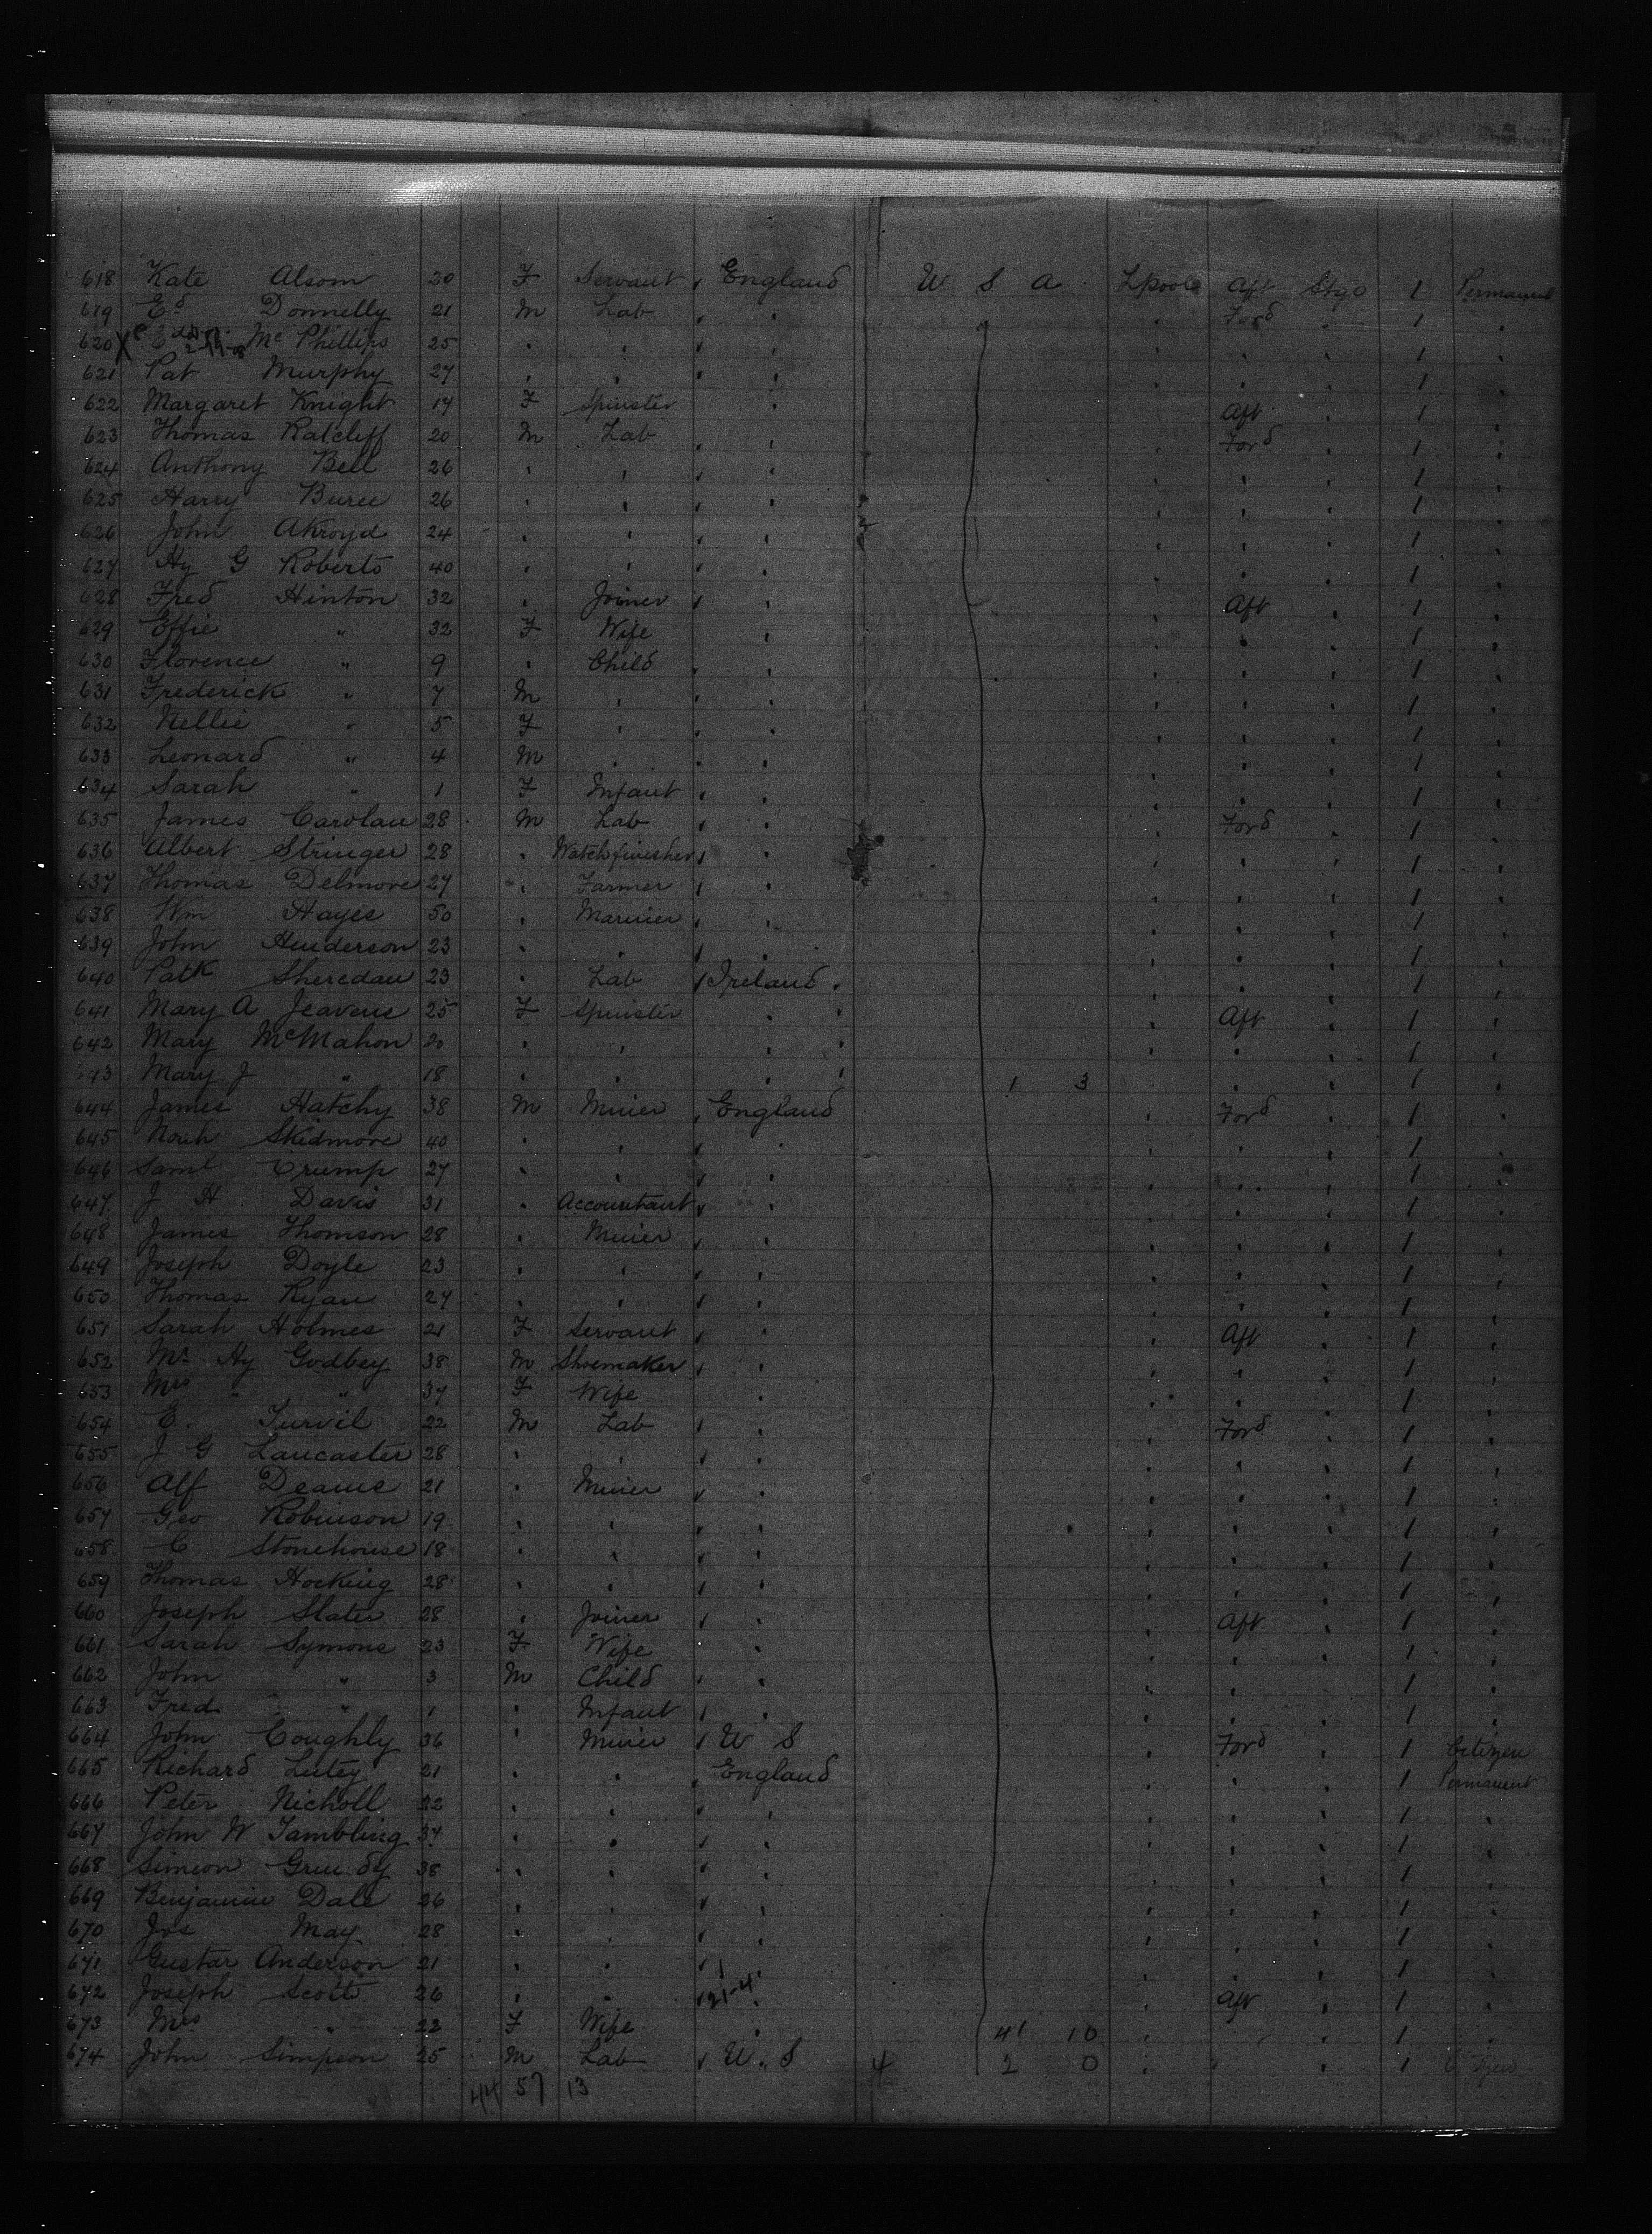 618 Kate Alsom 20 F Servant England U S A Lpool Aft Stge 1 Permanent
619 Ed Donnelly 21 M Lab " " " Ford " 1 "
620 X Mc Phillips 25 " " " " " " " 1 "
621 Pat Murphy 27 " " " " " " " 1 "
622 Margaret Knight 17 F Spinster " " Aft " 1 "
623 Thomas Ratcliff 20 M Lab " " " Ford " 1 "
624 Anthony Bell 26 " " " " " " " 1 "
625 Harry Buree 26 " " " " " " " 1 "
626 John Akroyd 24 " " " " " " " 1 "
627 Hy G Roberts 40 " " " " " " " 1 "
628 Fred Hinton 32 " Joiner " " " Aft " 1 "
629 Effie " 32 F Wife " " " " 1 "
630 Florence " 9 " Child " " " " " 1 "
631 Frederick " 7 M " " " " " " 1 "
632 Nellie " 5 F " " " " " " 1 "
633 Leonard " 4 M " " " " " " 1 "
634 Sarah " 1 F Infant " " " " " 1 "
635 James Carolan 28 M Lab " " " Ford " 1 "
636 Albert Stringer 28 " Watchfinisher " " " " " 1 "
637 Thomas Delmore 27 " Farmer " " " " " 1 "
638 Wm Hayes 50 " Mariner " " " " " 1 "
639 John Henderson 23 " " " " " " " 1 "
640 Patk Sheredan 23 " Lab Ireland " " " 1 "
641 Mary A Jeavens 25 F Spinster " " Aft " 1 "
642 Mary McMahon 20 " " " " " " 1 "
643 Mary J " 18 " " " 1 3 " " " 1 "
644 James Hatchy 38 M Miner England " Ford " 1 "
645 Noah Skidmore 40 " " " " " " " 1 "
646 Saml Crump 27 " " " " " " " 1 "
647 J H Davis 31 " Accountant " " " " " 1 "
648 James Thomson 28 " Miner " " " " " 1 "
649 Joseph Doyle 23 " " " " " " " 1 "
650 Thomas Ryan 27 " " " " " " " 1 "
651 Sarah Holmes 21 F Servant " " " Aft " 1 "
652 Mr Hy Godbey 38 M Shoemaker " " " " " 1 "
653 Mrs " " 37 F Wife " " " " 1 "
654 E. Turvil 22 M Lab " " " Ford " 1 "
655 J G Lancaster 28 " " " " " " " 1 "
656 Alf Deane 21 " Miner " " " " " 1 "
657 Geo Robinson 19 " " " " " " " 1 "
658 C Stonehouse 18 " " " " " " " 1 "
659 Thomas Hocking 28 " " " " " " " 1 "
660 Joseph Slater 28 " Joiner " " " Aft " 1 "
661 Sarah Symons 23 F Wife " " " " 1 "
662 John " 3 M Child " " " " " 1 "
663 Fred " 1 " Infant " " " " " 1 "
664 John Coughly 36 " Miner U S " Ford " 1 Citizen
665 Richard Lutey 21 " " England " " " 1 Permanent
666 Peter Nicholl 22 " " " " " " " 1 "
667 John W Tambling 37 " " " " " " " 1 "
668 Simeon Grundy 38 " " " " " " " 1 "
669 Benjamin Dale 26 " " " " " " " 1 "
670 Jos May 28 " " " " " " " 1 "
671 Gustar Anderson 21 " " " " " " " 1 "
672 Joseph Scott 26 " " 21-4 " " Aft " 1 "
673 Mrs " 22 F Wife " 41 10 " " " 1 "
674 John Simpson 25 M Lab U. S 4 2 0 " " " 1
44 57 13